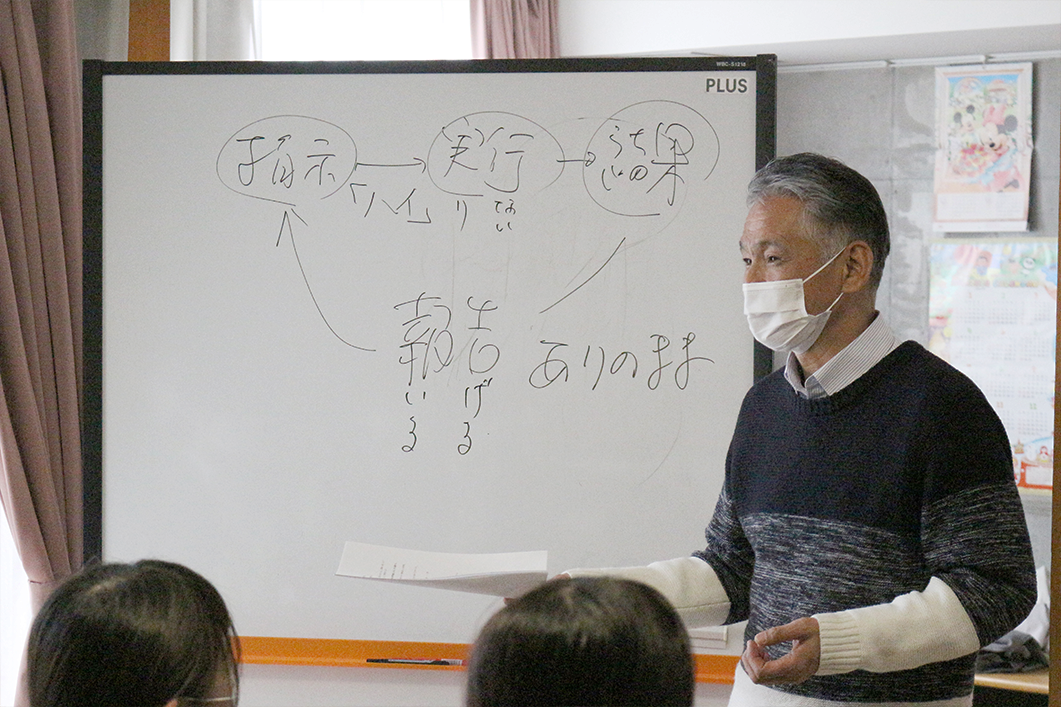 WBC-S1210
PLUS
指示 → 実行 → 結果
「ハイ」 り ない
報告 ありのまま
いる げる